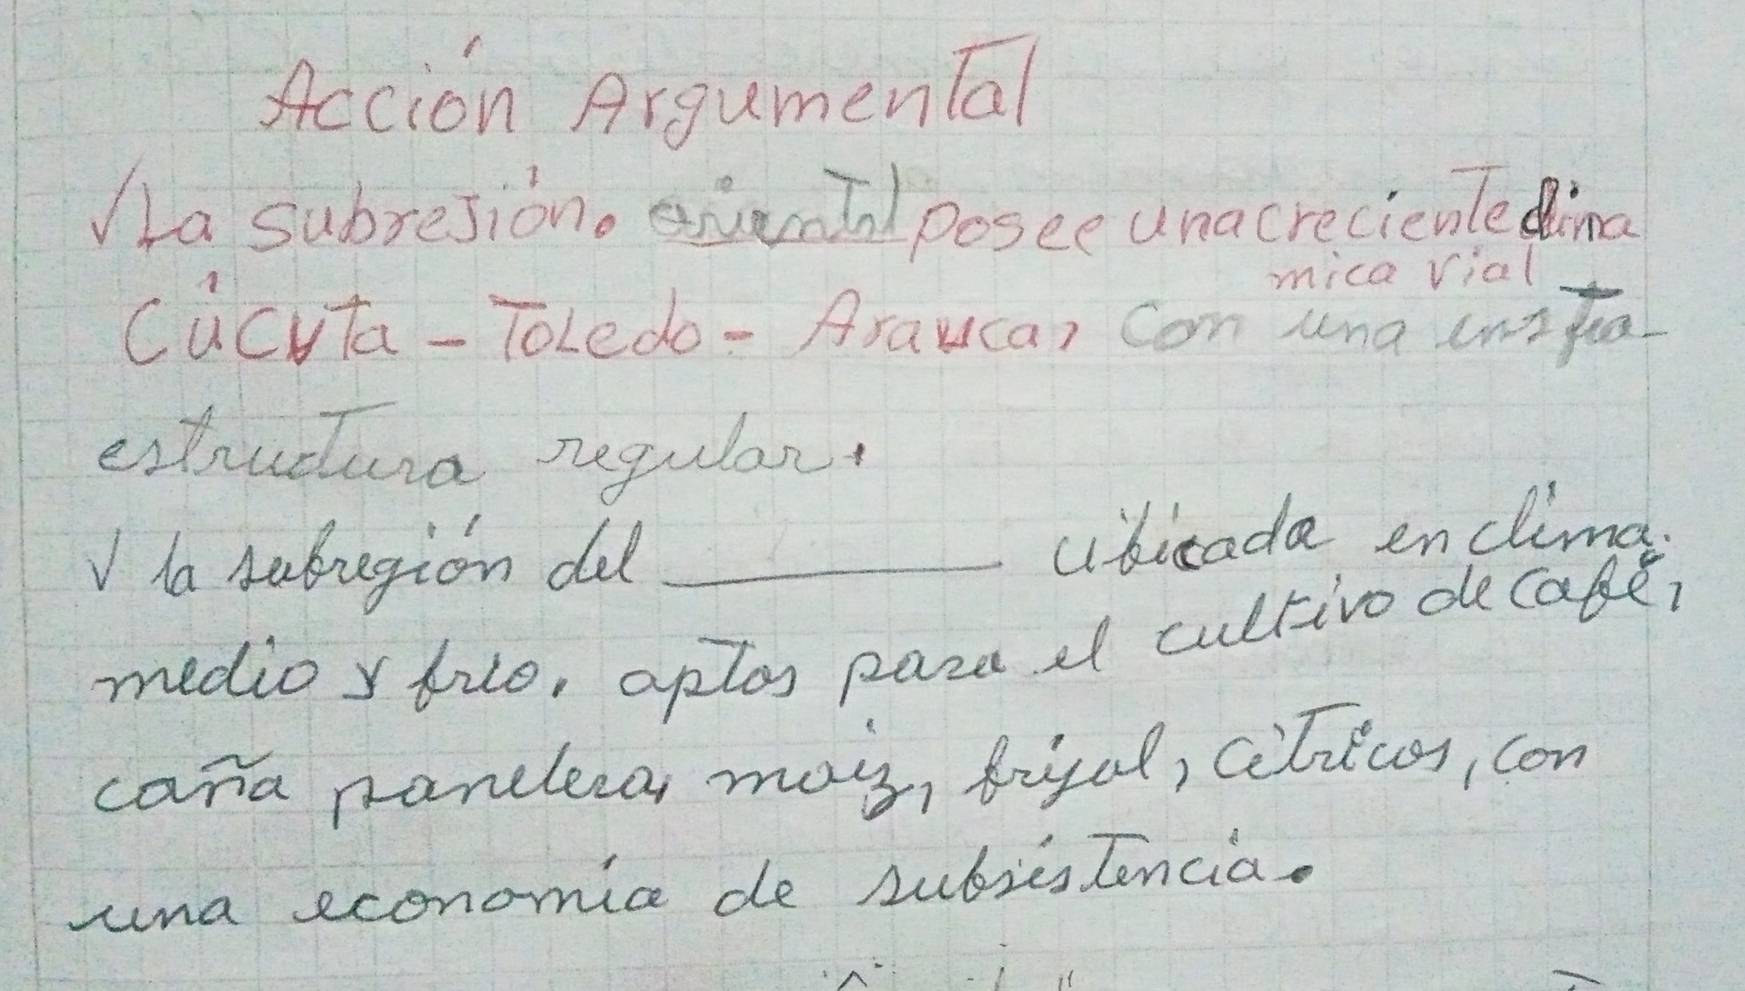 Acción Argumental
√ La subresión. oriental posee una creciente dina
mica vial
Cúcuta - Toledo - Arauca, con una insfra-
estructura regular.
√ la subregión del ________ ubicada en clima.
medio y frio, aptos para el cultivo de café,
caña panelera, maiz, frijol, citricos, con
una economía de subsistencia.